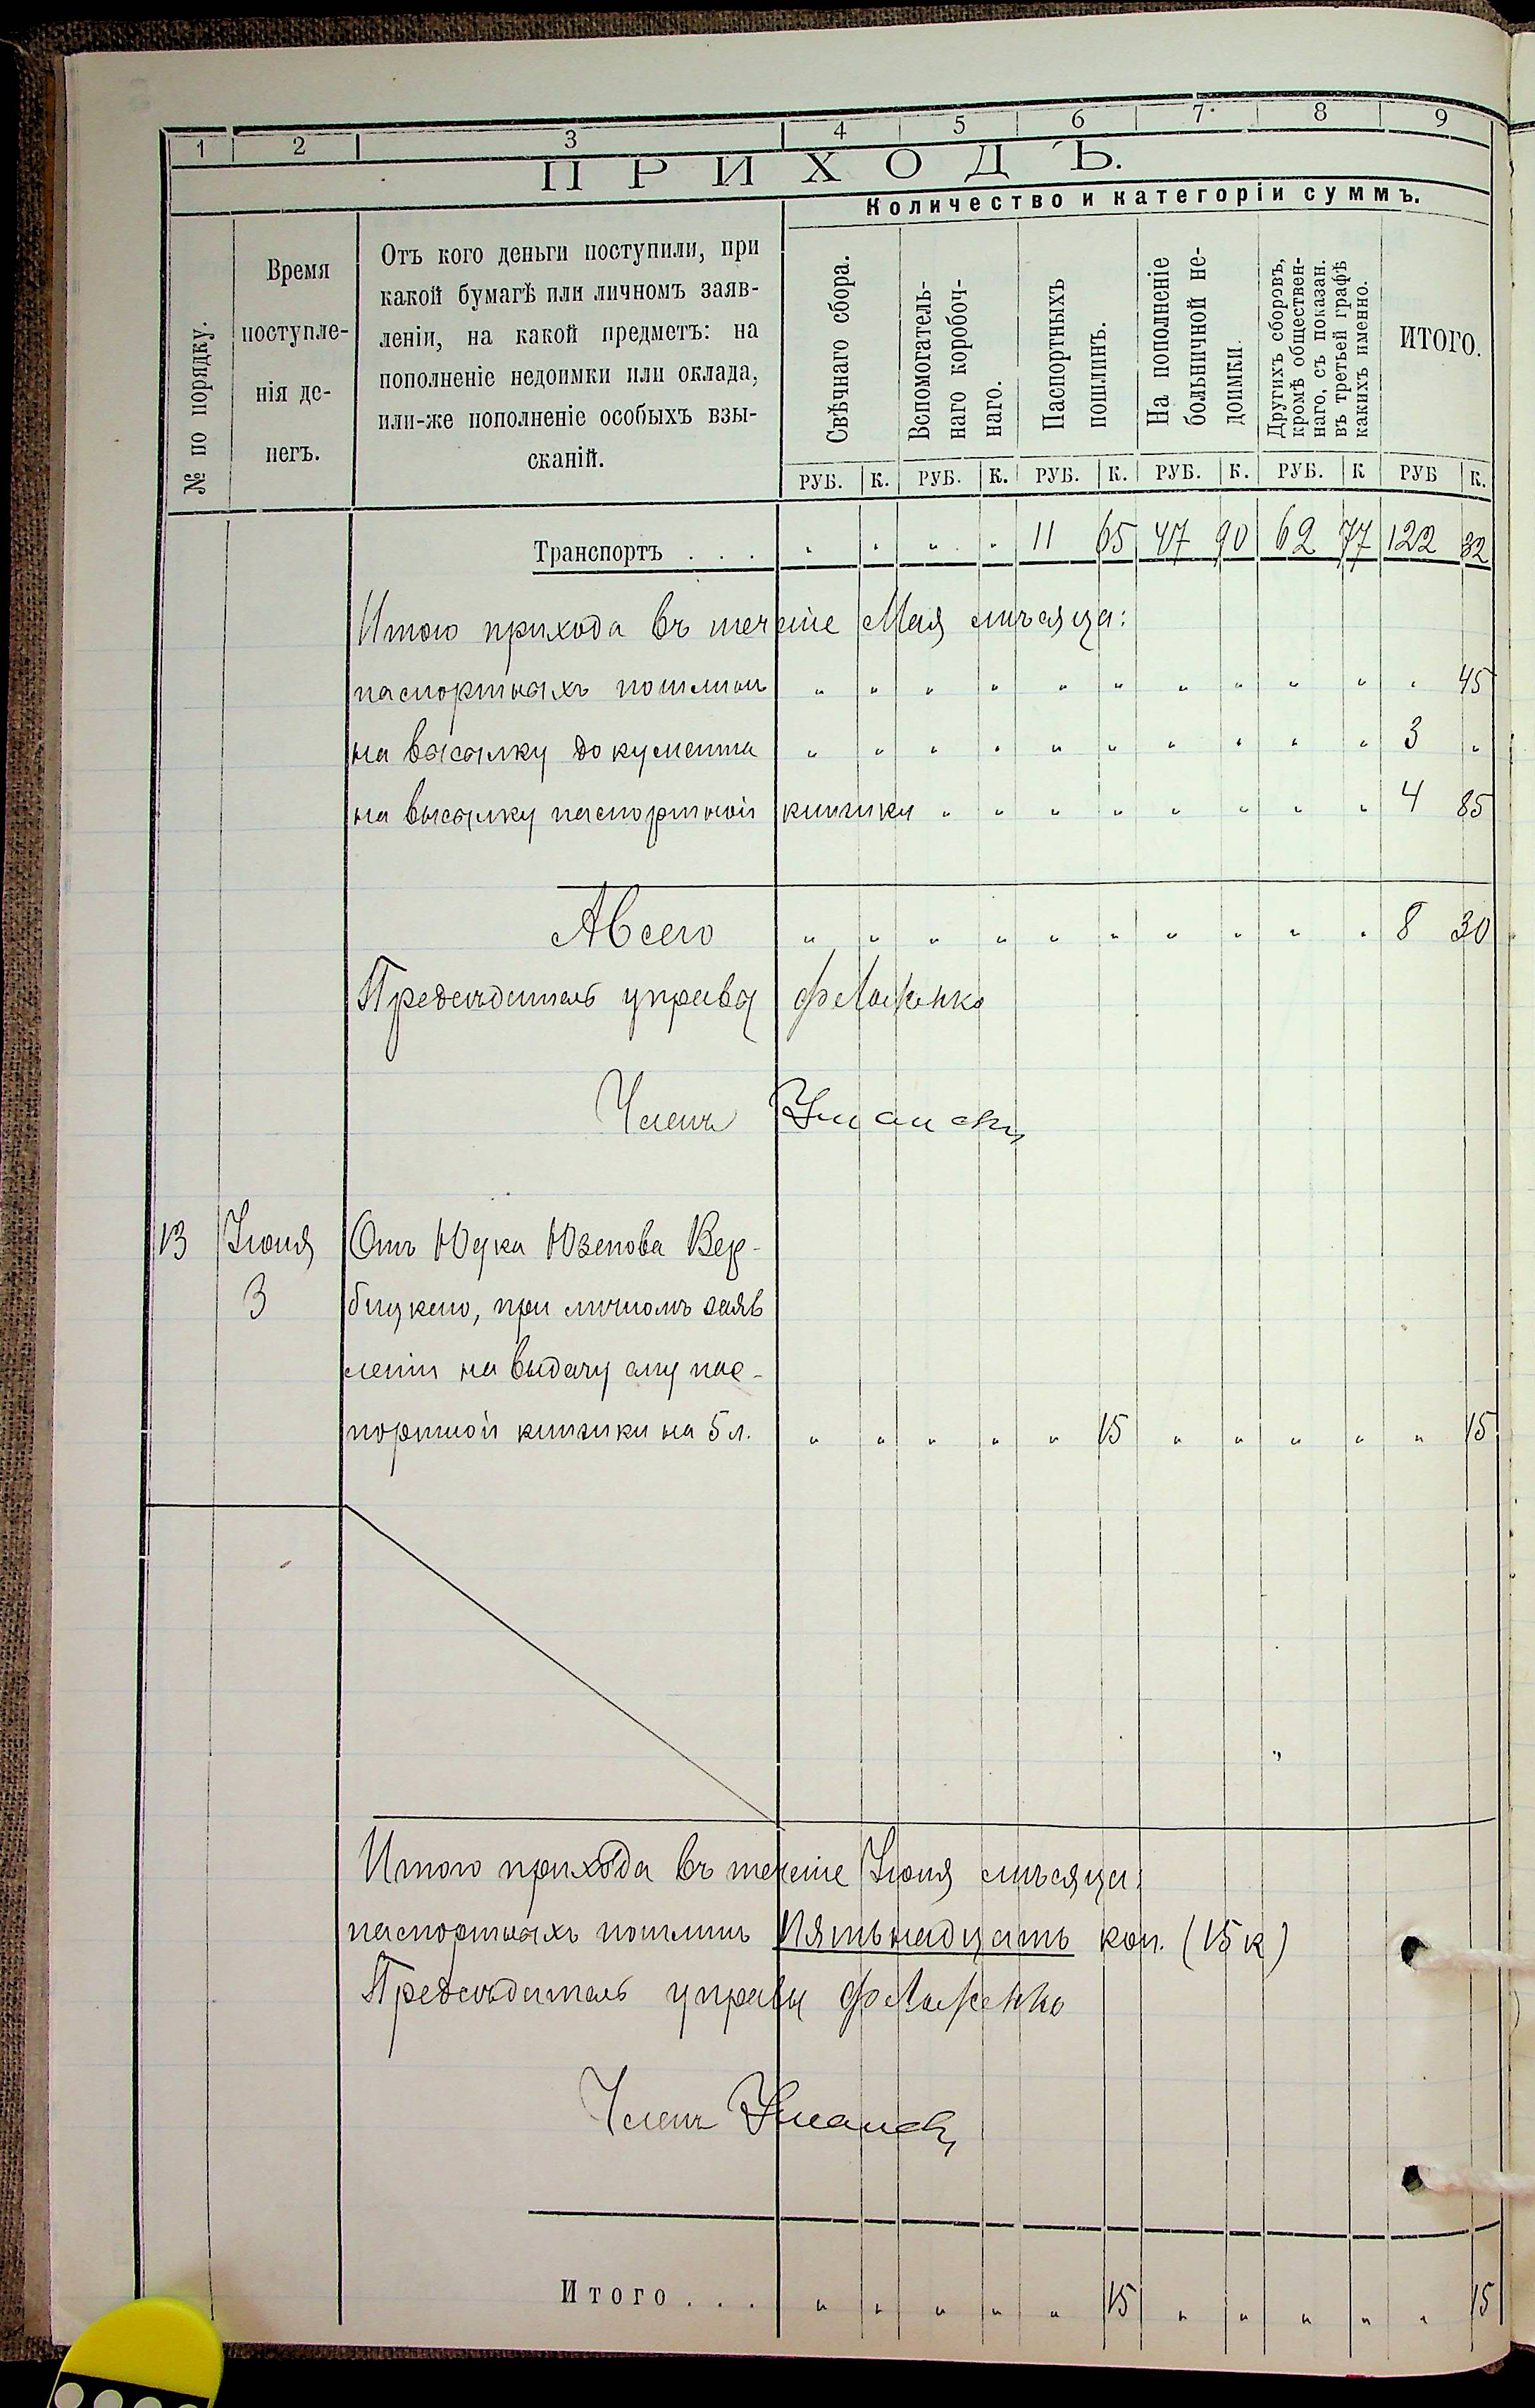 1 2 3 4 5 6 7 8 9
ПРИХОДЪ.
Количество и категоріи суммъ.
№ по порядку.
Время
поступле-
нія де-
негъ.
Отъ кого деньги поступили, при
какой бумагѣ или личномъ заяв-
леніи, на какой предметъ: на
пополненіе недоимки или оклада,
или-же пополненіе особыхъ взы-
сканій.
Свѣчнаго сбора.
Вспомогатель-
наго коробоч-
наго.
Паспортныхъ
пошлинъ.
На пополненіе
больничной не-
доимки.
Другихъ сборовъ,
кромѣ обществен-
наго, съ показан.
въ третьей графѣ
какихъ именно.
ИТОГО.
РУБ. К. РУБ. К. РУБ. К. РУБ. К. РУБ. К РУБ К.
Транспортъ . . . " " " " 11 65 47 90 62 77 122 32
Итого прихода въ теченіе Мая мѣсяца:
паспортныхъ пошлинъ " " " " " " " " " " " 45
на высылку документа " " " " " " " " " " 3 "
на высылку паспортной книжки " " " " " " " " 4 85
А всего " " " " " " " " " " 8 30
Предсѣдатель управы
Членъ Уманскій
13 Іюня Отъ Юдка Юзепова Вер-
3 бицкаго, при личномъ заяв
леніи на выдачу ему пас-
портной книжки на 5 л. " " " " " 15 " " " " " 15
Итого прихода въ теченіе Іюня мѣсяца:
паспортныхъ пошлинъ Пятьнадцать коп. (15 к)
Предсѣдатель управы
Членъ Уманскій
Итого . . . " " " " " 15 " " " " " 15